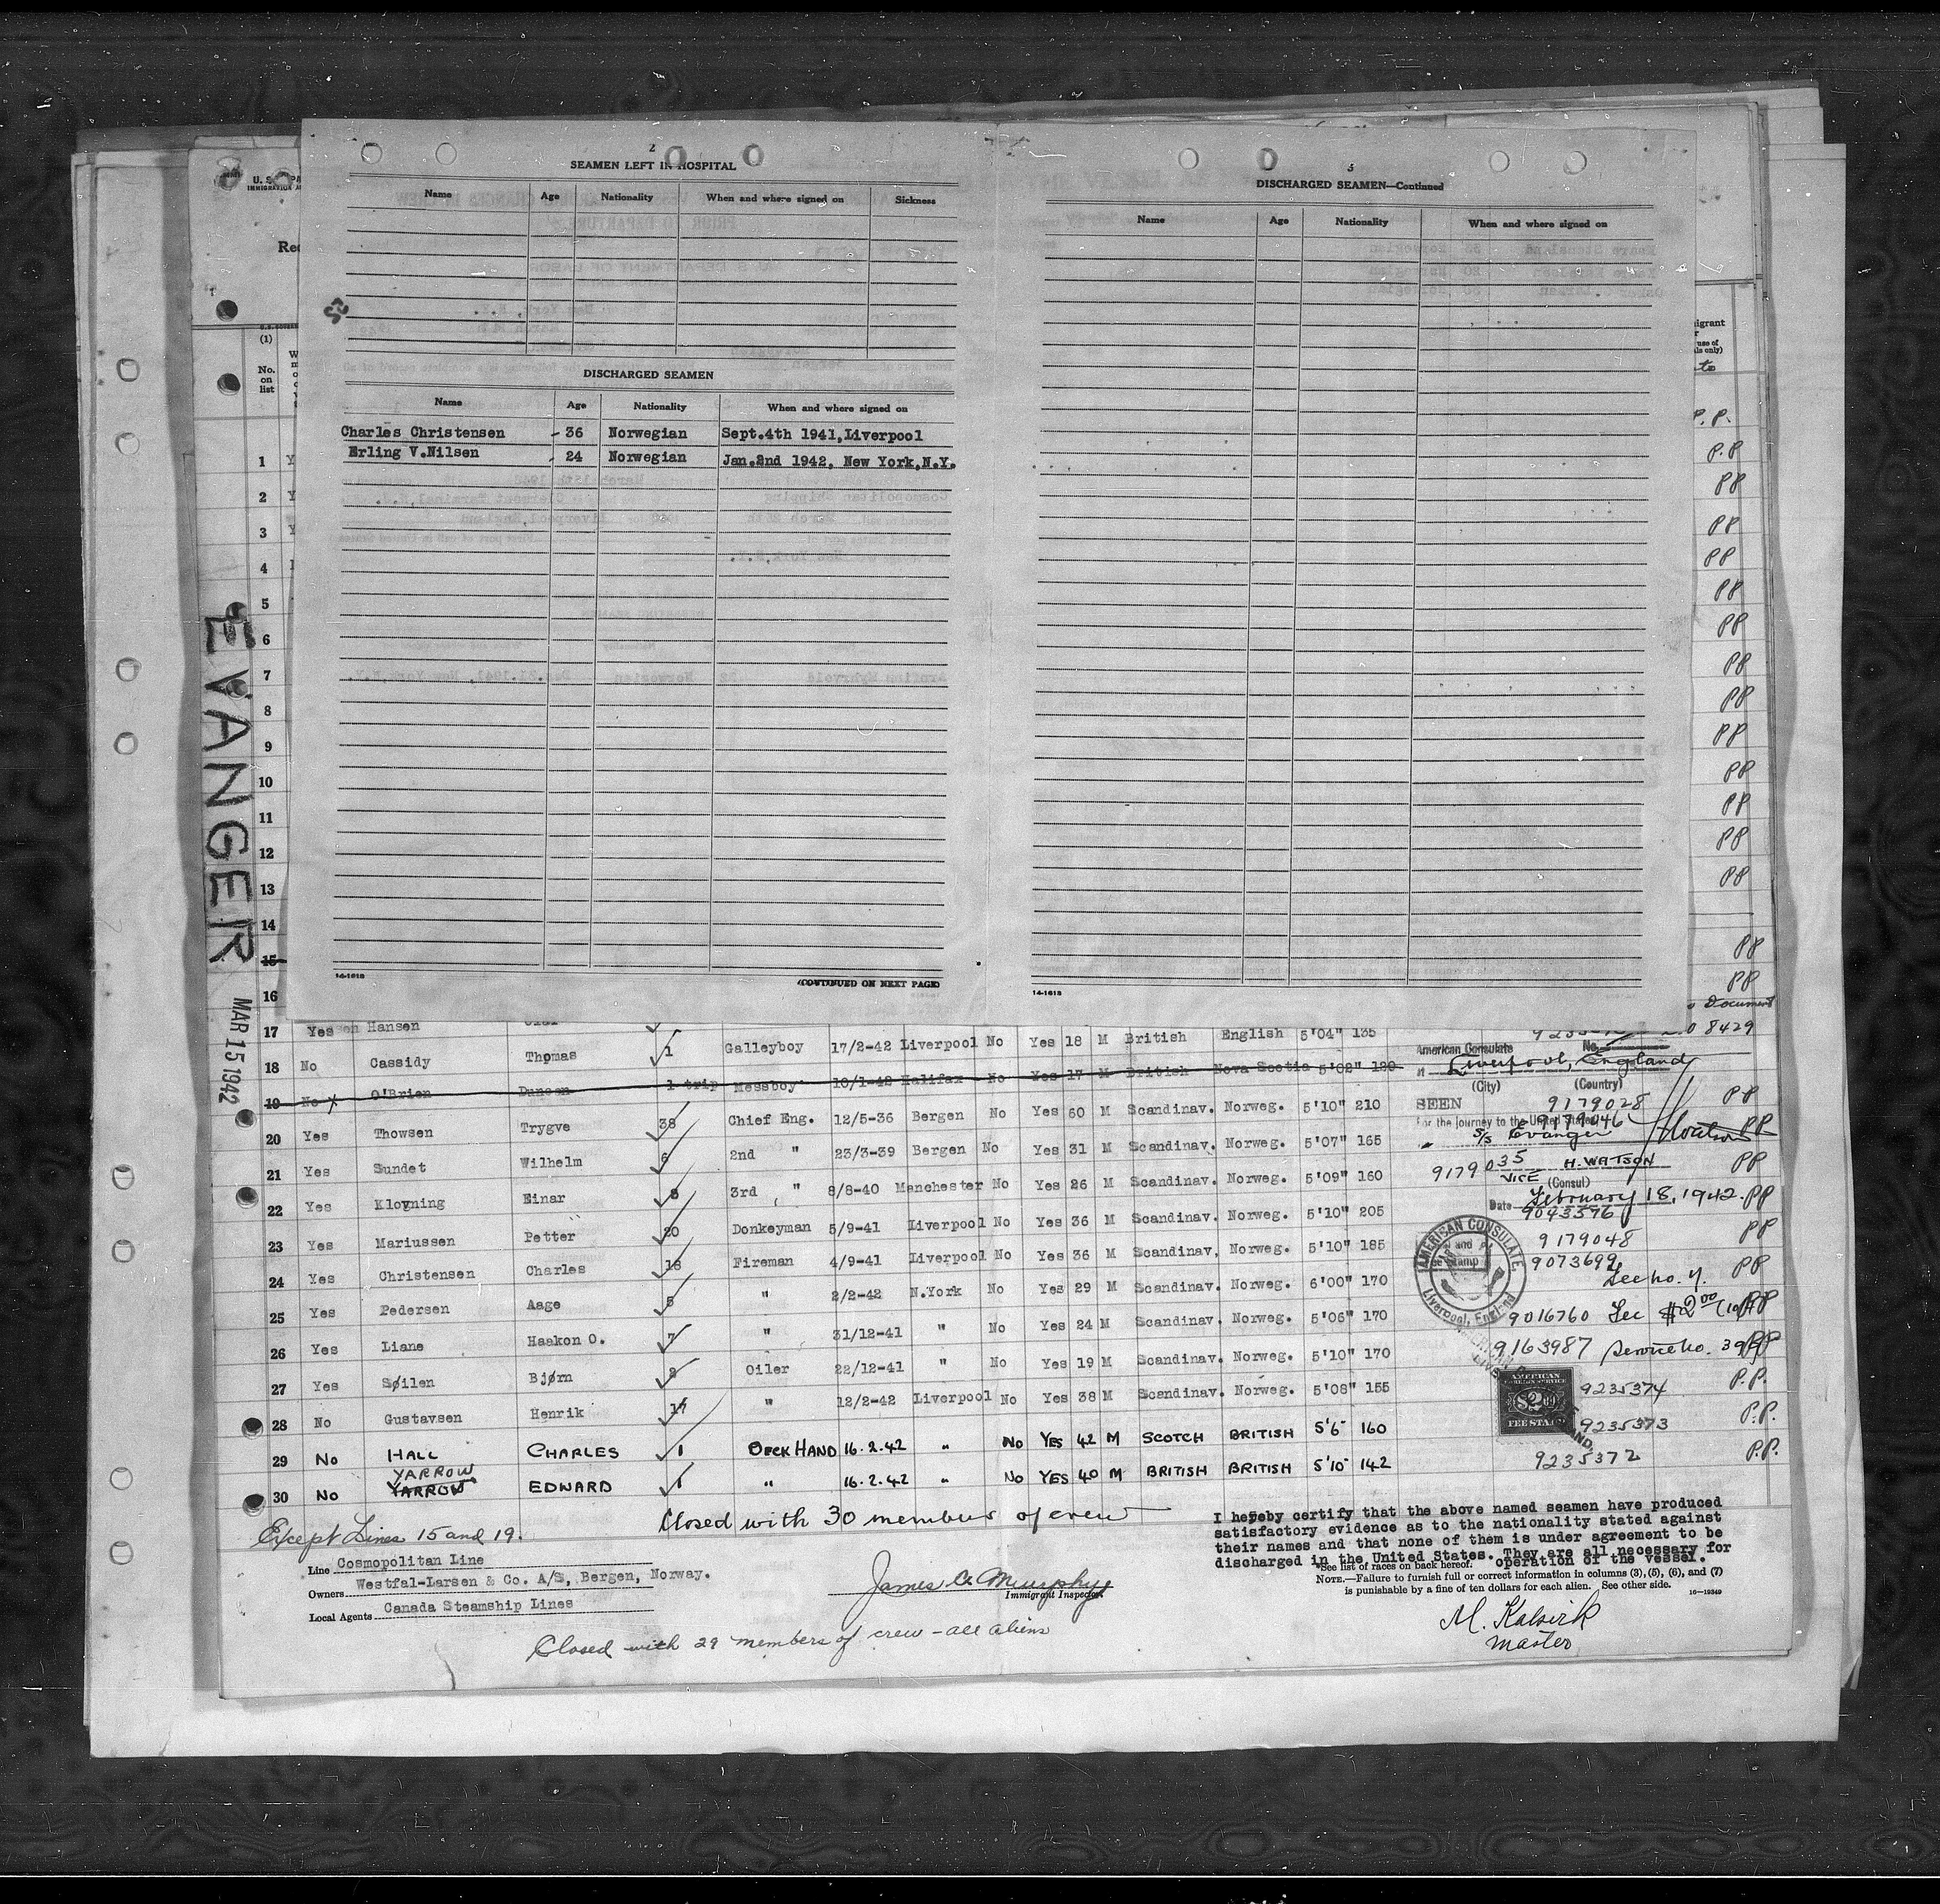 2
SEAMEN LEFT IN HOSPITAL
Name Age Nationality When and where signed on Sickness
DISCHARGED SEAMEN
Name Age Nationality When and where signed on
Charles Christensen - 36 Norwegian Sept.4th 1941,Liverpool
Erling V.Nilsen - 24 Norwegian Jan.2nd 1942, New York,N.Y.
14-1618
(CONTINUED ON NEXT PAGE)
DISCHARGED SEAMEN—Continued
Name Age Nationality When and where signed on
14-1618
(1)
No. on list
EVANGER
MAR 15 1942
1
2
3
4
5
6
7
8
9
10
11
12
13
14
15
16
17 Yes Hansen
18 No Cassidy Thomas 1 Galleyboy 17/2-42 Liverpool No Yes 18 M British English 5'04" 135
19 No x O'Brien 1 trip Messboy 10/1-42 Halifax No Yes 17 M British Nova Scotia 5'02" 120
20 Yes Thowsen Trygve 38 Chief Eng. 12/5-36 Bergen No Yes 60 M Scandinav. Norweg. 5'10" 210
21 Yes Sundet Wilhelm 6 2nd " 23/3-39 Bergen No Yes 31 M Scandinav. Norweg. 5'07" 165
22 Yes Kloyning Einar 8 3rd " 8/8-40 Manchester No Yes 26 M Scandinav. Norweg. 5'09" 160
23 Yes Mariussen Petter 20 Donkeyman 5/9-41 Liverpool No Yes 36 M Scandinav. Norweg. 5'10" 205
24 Yes Christensen Charles 18 Fireman 4/9-41 Liverpool No Yes 36 M Scandinav, Norweg. 5'10" 185
25 Yes Pedersen Aage 5 " 2/2-42 N.York No Yes 29 M Scandinav. Norweg. 6'00" 170
26 Yes Liane Haakon O. 7 " 31/12-41 " No Yes 24 M Scandinav. Norweg. 5'06" 170
27 Yes Søilen Bjørn Oiler 22/12-41 " No Yes 19 M Scandinav. Norweg. 5'10" 170
28 No Gustavsen Henrik " 12/2-42 Liverpool No Yes 38 M Scandinav. Norweg. 5'08" 155
29 No HALL CHARLES 1 DECK HAND 16.2.42 " No YES 42 M SCOTCH BRITISH 5'6" 160
YARROW
30 No YARROW EDWARD 1 " 16.2.42 " No YES 40 M BRITISH BRITISH 5'10" 142
Document
8429
American Consulate No.
at Liverpool, England
(City) (Country)
SEEN 9179028
For the journey to the United States 9179046
S/S Evanger
9179035 H. WATSON
VICE (Consul)
Date February 18, 1942.
9043576
9179048
9073692
Fee no. 4.
9016760 Fee $2.00
9163987 Service no.
9235374
9235373
9235372
AMERICAN CONSULATE
Liverpool, England
AMERICAN FOREIGN SERVICE
$2.00
FEE STAMP
Closed with 30 members of crew
Except Lines 15 and 19.
Line Cosmopolitan Line
Owners Westfal-Larsen & Co. A/S, Bergen, Norway.
Local Agents Canada Steamship Lines
James A. Murphy
Immigrant Inspector
Closed with 29 members of crew - all aliens
I hereby certify that the above named seamen have produced
satisfactory evidence as to the nationality stated against
their names and that none of them is under agreement to be
discharged in the United States. They are all necessary for
operation of the vessel.
*See list of races on back hereof.
NOTE.—Failure to furnish full or correct information in columns (3), (5), (6), and (7)
is punishable by a fine of ten dollars for each alien. See other side.
16-19349
master